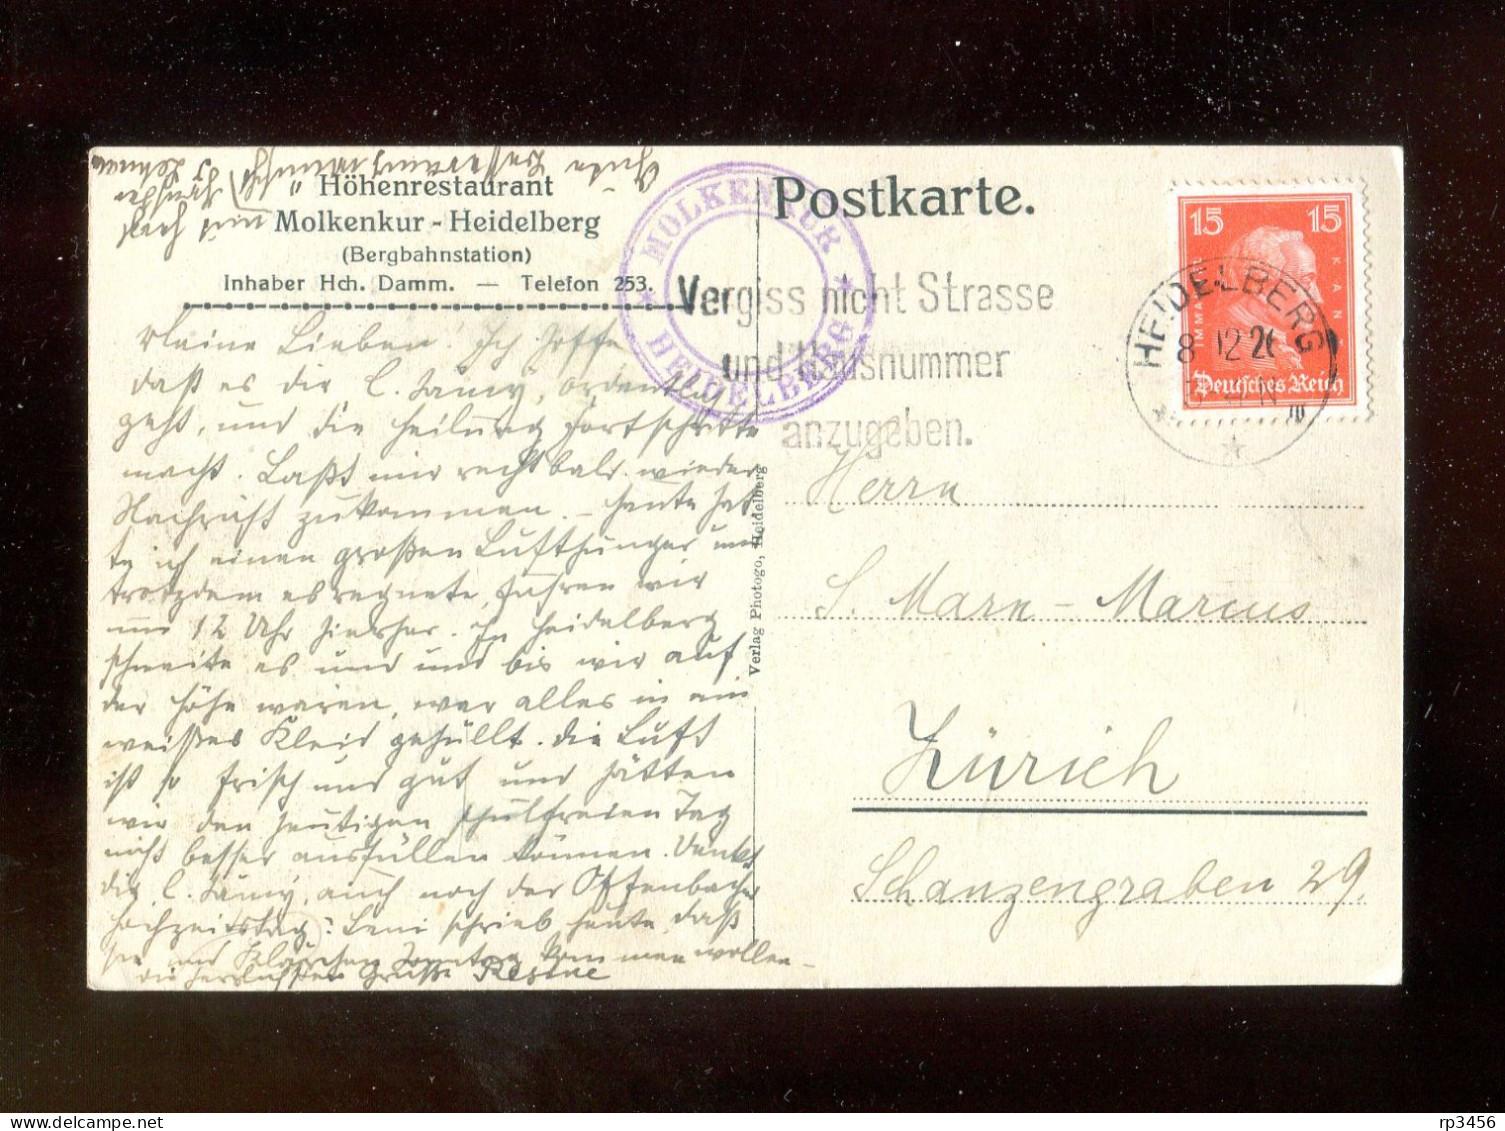 Höhenrestaurant
Molkenkur - Heidelberg
(Bergbahnstation)
Inhaber Hch. Damm. — Telefon 253.
MOLKENKUR
HEIDELBERG
Postkarte.
15 15
IMMANUEL KANT
Deutsches Reich
HEIDELBERG
8 12 26
Vergiss nicht Strasse
und Hausnummer
anzugeben.
Verlag Photogo, Heidelberg
Herrn
S. Mann-Marcus
Zürich
Schanzengraben 29.
Meine Lieben! Ich hoffe
daß es dir l. ordentlich
geht, und die Heilung Fortschritte
macht. Laßt mir recht bald wieder
Nachricht zukommen. – Heute hat-
te ich einen großen Lufthunger und
trotzdem es regnete, fuhren wir
um 12 Uhr hierher. In Heidelberg
schneite es und und bis wir auf
der Höhe waren, war alles in ein
weißes Kleid gehüllt. Die Luft
ist so frisch und gut und hätten
wir den heutigen schulfreien Tag
nicht besser ausfüllen können. Denkt
l. auch noch der Offenbacher
Hochzeitstag! Leni schrieb heute, daß
sie und Sonntag kommen wollen –
die herzlichsten Grüße
Gute Besserung wünscht